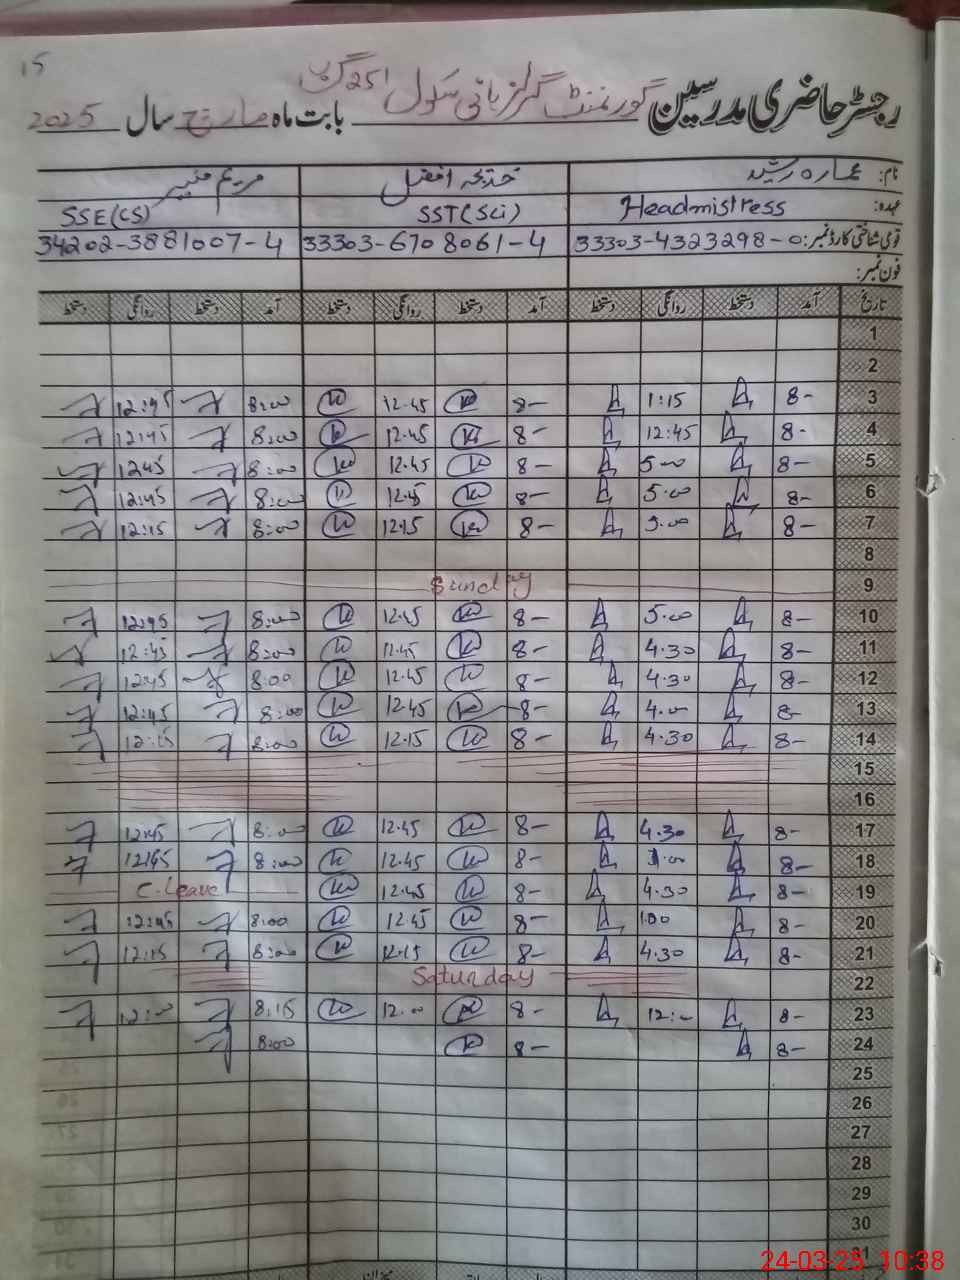 15
رجسٹر حاضری مدرسین گورنمنٹ گرلز ہائی سکول 251 گ ب بابت ماہ مارچ سال 2025
نام: عمارہ رشید خدیجہ افضل مریم منیر
عہدہ: Headmistress SST(Sci) SSE(CS)
قومی شناختی کارڈ نمبر: 33303-4323298-0 33303-6708061-4 34202-3881007-4
فون نمبر:
تاریخ آمد دستخط روانگی دستخط آمد دستخط روانگی دستخط آمد دستخط روانگی دستخط
1
2
3 8- 1:15 8- 12.45 8:00 12:45
4 8- 12:45 8- 12.45 8:00 12:45
5 8- 5.00 8- 12.45 8:00 12:45
6 8- 5.00 8- 12.45 8:00 12:45
7 8- 8- 12.15 8:00 12:15
8
9 Sunday
10 8- 5.00 8- 12.45 8:00 12:45
11 8- 4.30 8- 12.45 8:00 12:45
12 8- 4.30 8- 12.45 8:00 12:45
13 8- 4.00 8- 12.45 8:00 12:45
14 8- 4.30 8- 12.15 8:00 12:15
15
16
17 8- 4.30 8- 12.45 8:00 12:45
18 8- 8- 12.45 8:00 12:45
19 8- 4.30 8- 12.45 C.Leave
20 8- 8- 12.45 8:00 12:45
21 8- 4.30 8- 12.15 8:00 12:15
22 Saturday
23 8- 12:00 8- 12.00 8:15 12:00
24 8- 8- 8:00
25
26
27
28
29
30
31
24-03-25 10:38